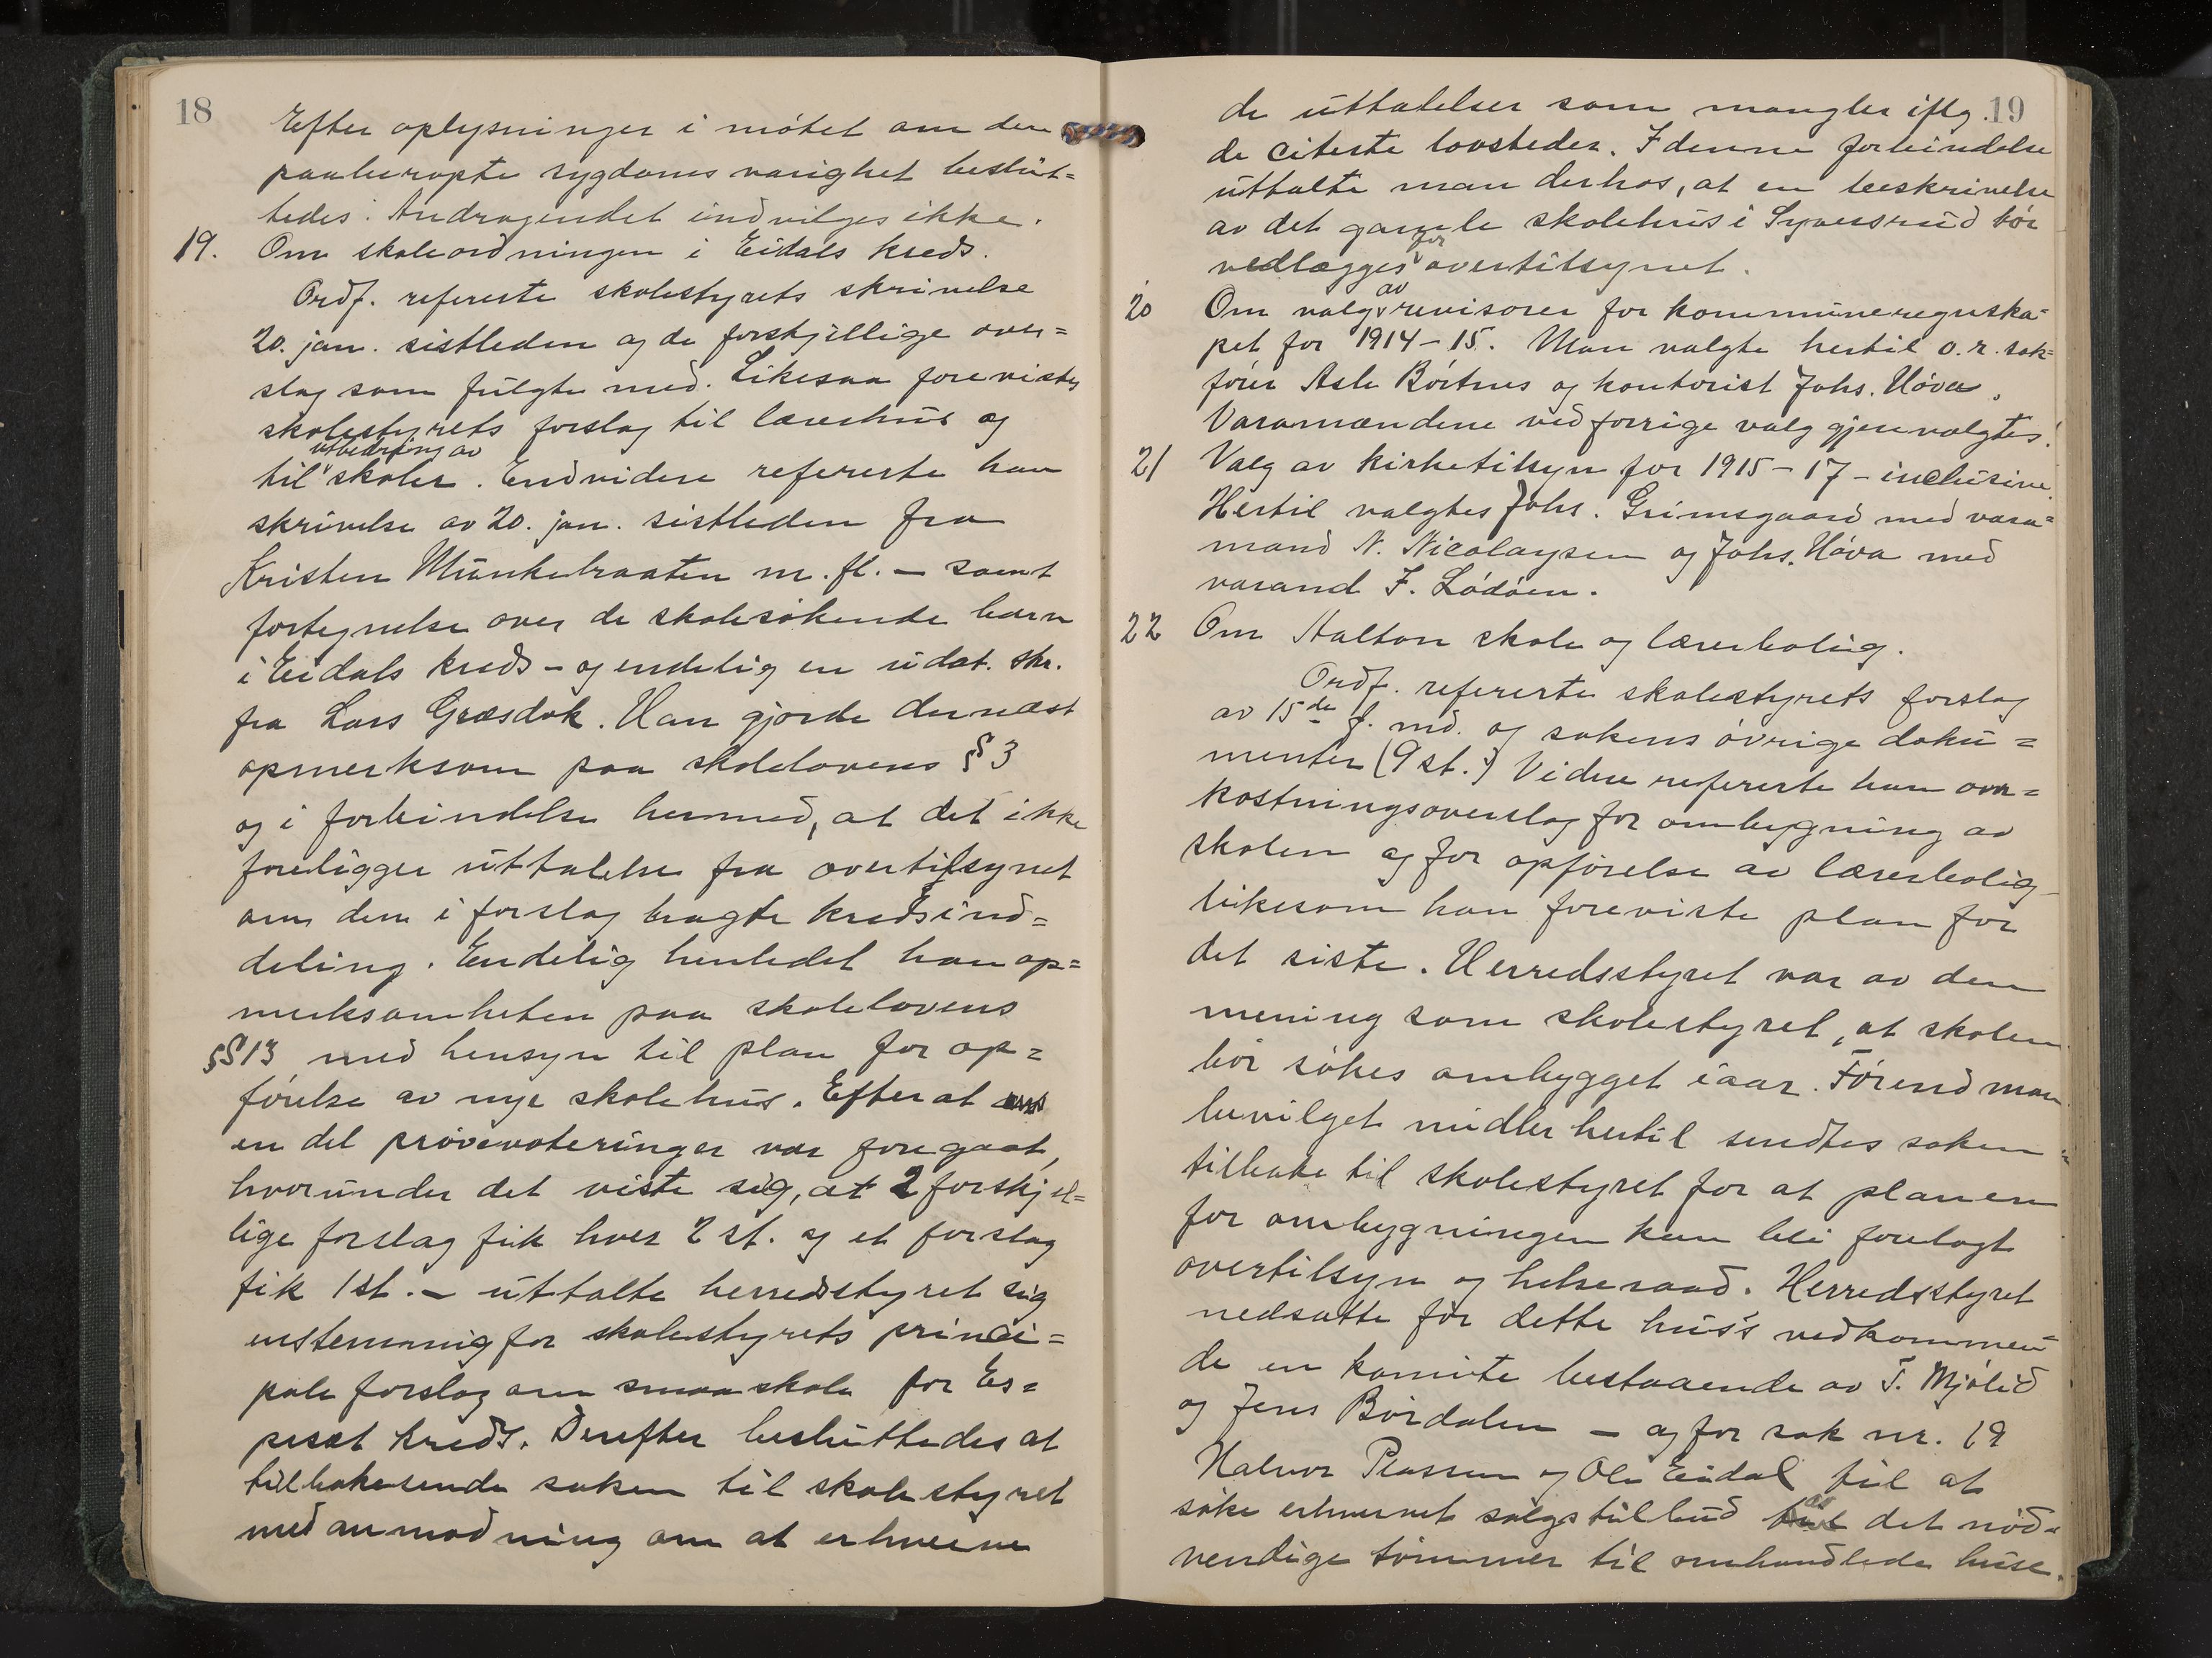 18
Efter oplysninger i møtet om den
paaberopte sygdoms varighet beslut=
tedes: Andragendet indvilges ikke.
19. Om skoleordningen i Eidals kreds.
Ordf. refererte skolestyrets skrivelse
20. jan. sistleden og de forskjellige over=
slag som fulgte med. Likesaa forevistes
skolestyrets forslag til lærerhus og
utbedring av
til skoler. Endvidere refererte han
skrivelse av 20. jan. sistleden fra
Kristen Munkebraaten m. fl. – samt
fortegnelse over de skolesøkende barn
i Eidals kreds – og endelig en udat. skr.
fra Lars Græsdok. Han gjorde dernæst
opmerksom paa skolelovens § 3
og i forbindelse hermed, at det ikke
foreligger uttalelse fra overtilsynet
om den i forslag bragte kredsind=
deling. Endelig henledet han op=
merksomheten paa skolelovens
§§ 13 med hensyn til plan for op=
førelse av nye skolehus. Efterat
en del prøvevoteringer var foregaat,
hvorunder det viste sig, at 2 forskjel=
lige forslag fik hver 2 st. og et forslag
fik 1 st. – uttalte herredsstyret sig
enstemmig for skolestyrets princi=
pale forslag om smaaskole for Es=
peset kreds. Derefter besluttedes at
tilbakesende saken til skolestyret
med anmodning om at erhverve
19
de uttalelser som mangler iflg.
de citerte lovsteder. I denne forbindelse
uttalte man derhos, at en beskrivelse
av det gamle skolehus i Syversrud bør
for
vedlægges overtilsynet.
20 Om valg av revisorer for kommuneregnska=
pet for 1914–15. Man valgte hertil o. r. sak=
fører Asle Børtnes og kontorist Johs. Hóva.
Varamændene ved forrige valg gjenvalgtes.
21 Valg av kirketilsyn for 1915–17 – inclusive.
Hertil valgtes Johs. Grimsgaard med vara=
mand N. Nicolaysen og Johs. Hóva med
varand F. Lódóen.
22 Om Halton skole og lærerbolig.
Ordf. refererte skolestyrets forslag
av 15de f. md. og sakens øvrige doku=
menter (9 st.) Videre refererte han om=
kostningsoverslag for ombygning av
skolen og for opførelse av lærerbolig –
likesom han foreviste plan for
det siste. Herredsstyret var av den
mening som skolestyret, at skolen
bør søkes ombygget iaar. Førend man
bevilget midler hertil sendtes saken
tilbake til skolestyret for at planen
for ombygningen kan bli forelagt
overtilsyn og helseraad. Herredsstyret
nedsatte for dette hus's vedkommen=
de en komite bestaaende av T. Mjólid
og Jens Bórdalen – og for sak nr. 19
Halvor Plassen og Ole Eidal til at
søke erhvervet salgstilbud av det nød=
vendige tømmer til omhandlede huse.